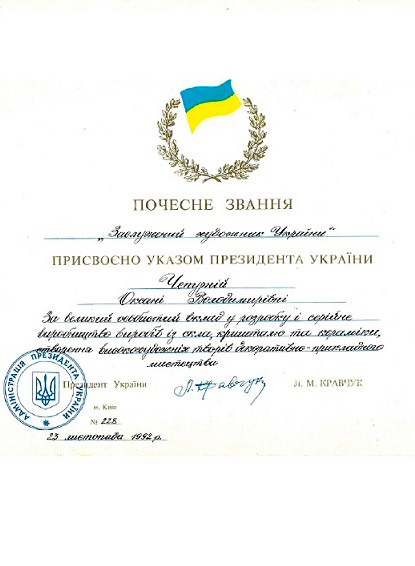 ПОЧЕСНЕ ЗВАННЯ
„Заслужений художник України“
ПРИСВОЄНО УКАЗОМ ПРЕЗИДЕНТА УКРАЇНИ
Чепурній
Оксані Володимирівні
За великий особистий вклад у розробку і серійне
виробництво виробів із скла, кришталю та кераміки,
створення високохудожніх творів декоративно-прикладного
мистецтва
Президент України Л. Кравчук Л. М. КРАВЧУК
АДМІНІСТРАЦІЯ ПРЕЗИДЕНТА УКРАЇНИ
м. Київ
№ 228
23 листопада 1992 р.